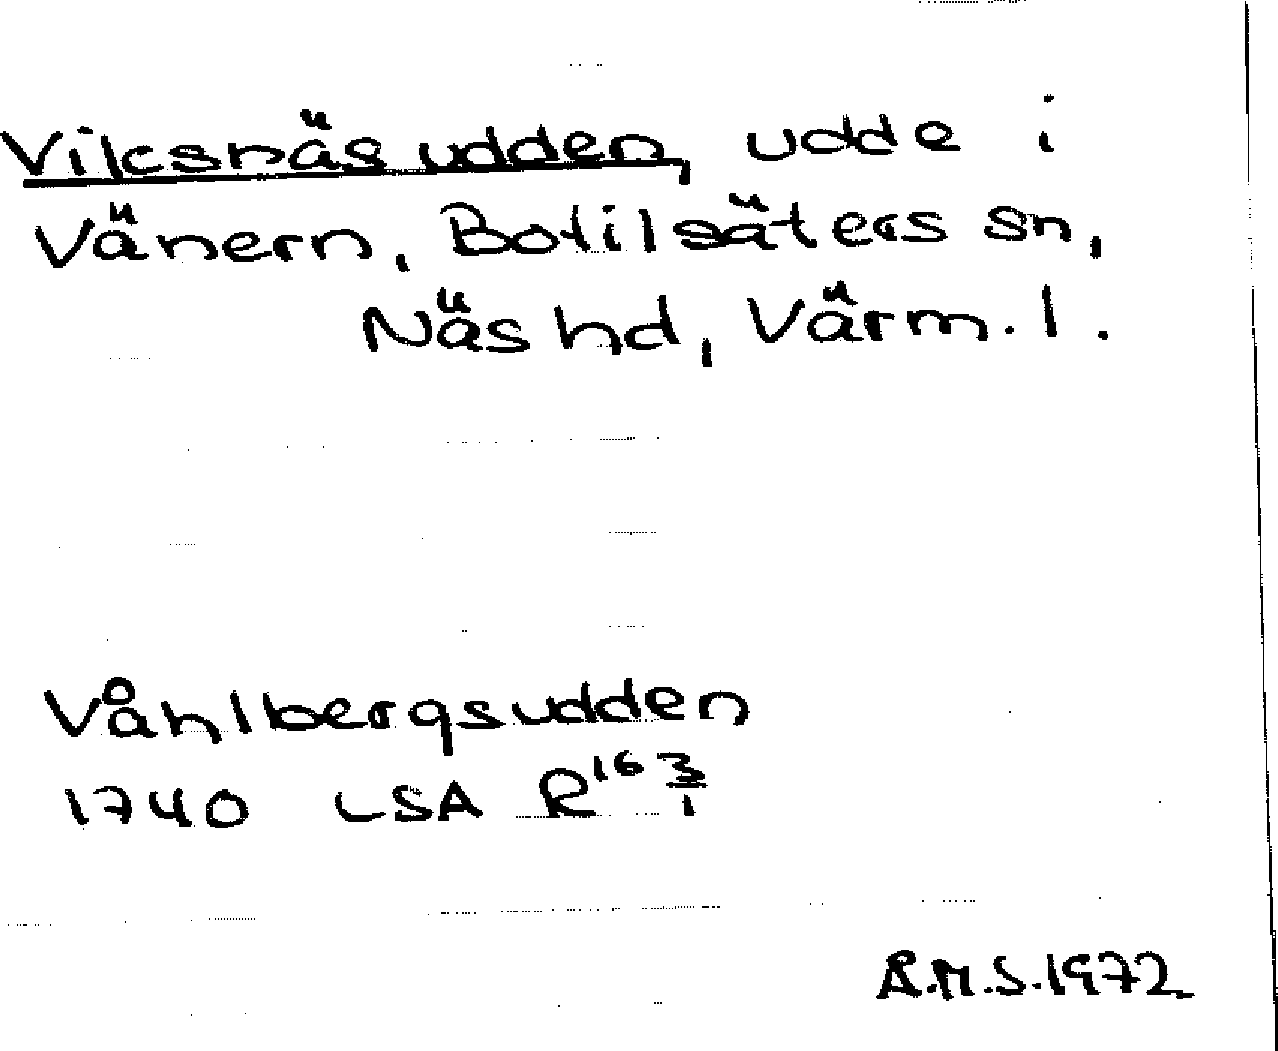 Viksnäsudden, udde i
Vänern, Botilsäters sn,
Näs hd, Värm. l.
Våhlbergsudden
1740 LSA R¹⁶ 3/1
R.M.S. 1972